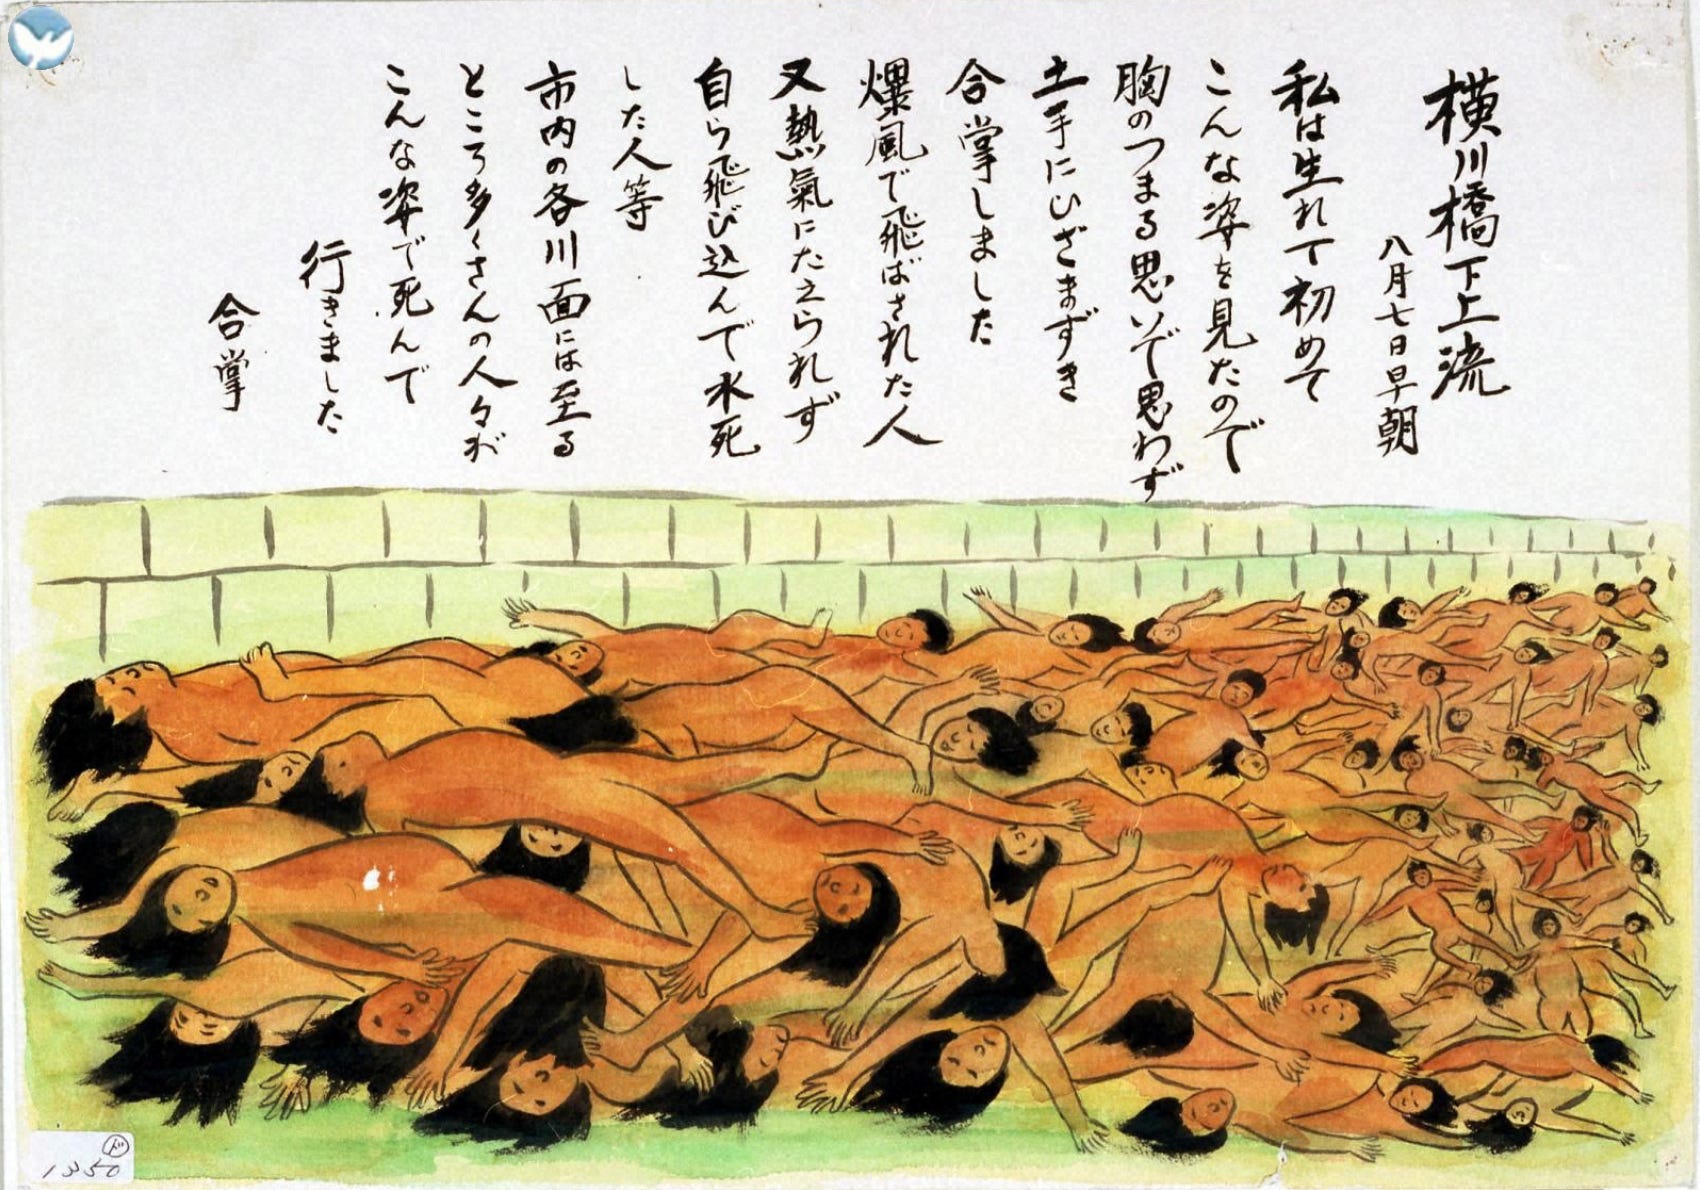 横川橋下上流
八月七日早朝
私は生れて初めて
こんな姿を見たので
胸のつまる思いで思わず
土手にひざまずき
合掌しました
爆風で飛ばされた人
又熱氣にたえられず
自ら飛び込んで水死
した人等
市内の各川面には至る
ところ多くさんの人々が
こんな姿で死んで
行きました
合掌
ド
1350